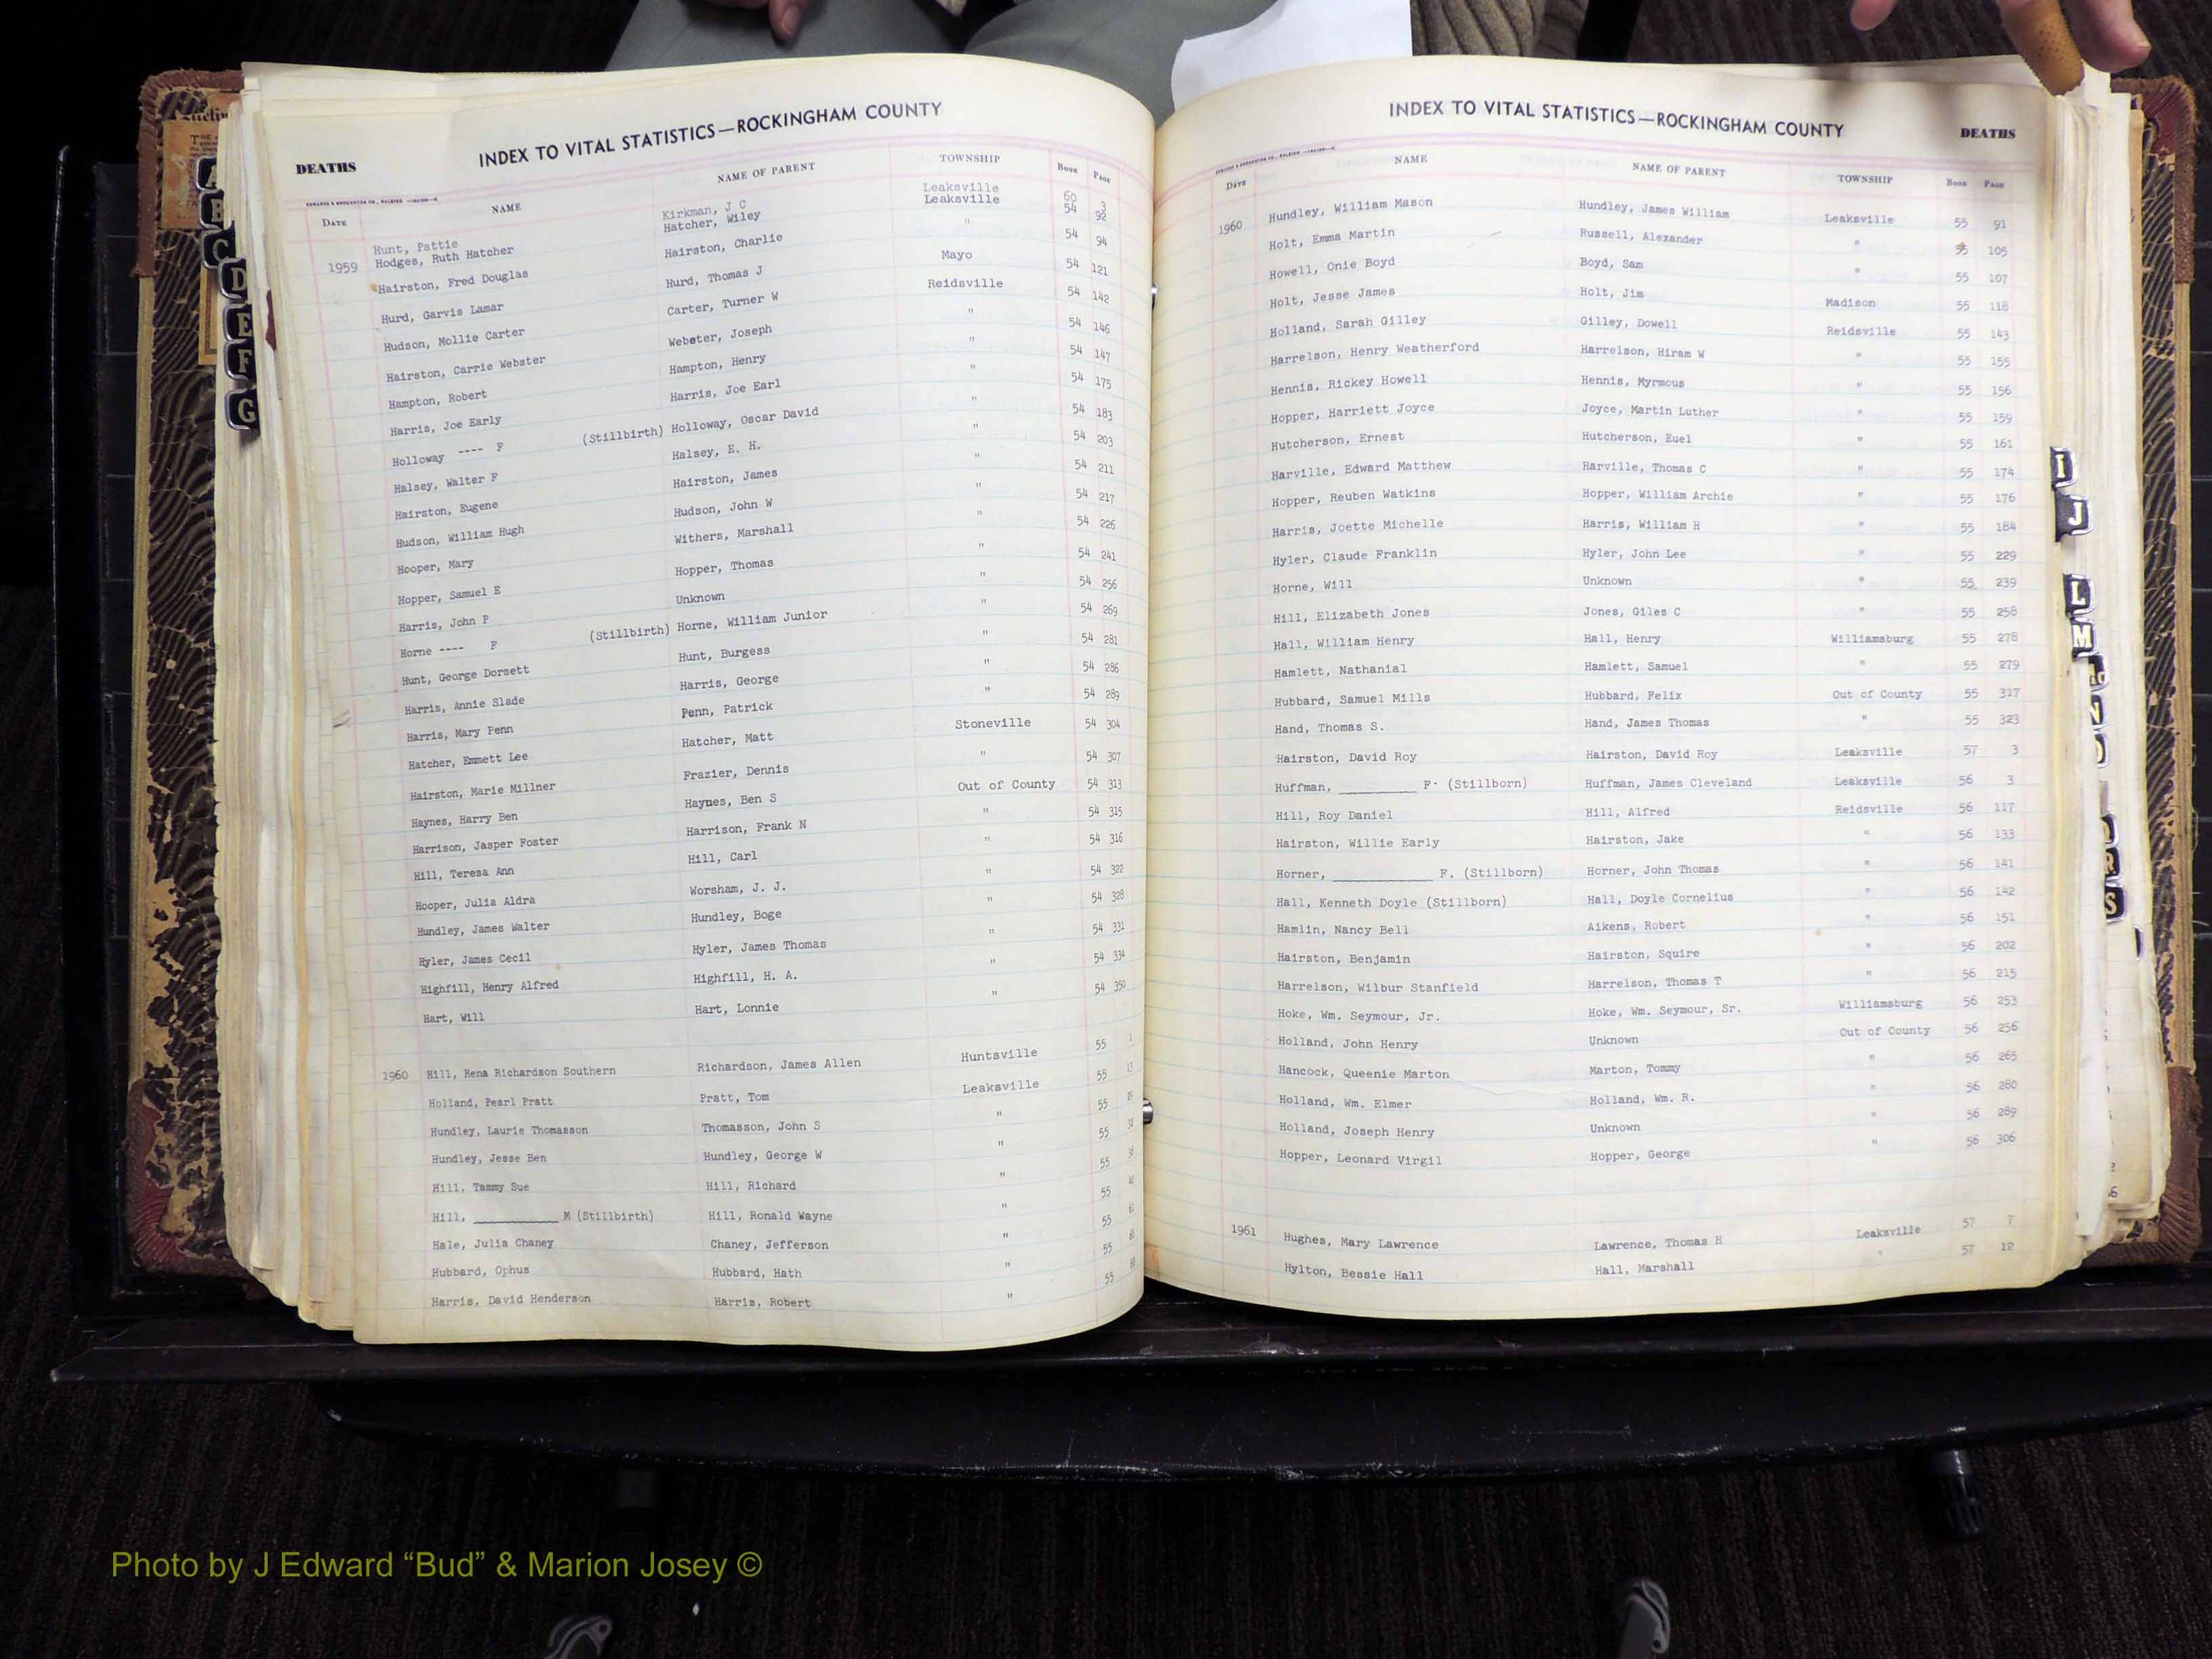 INDEX TO VITAL STATISTICS—ROCKINGHAM COUNTY
DEATHS
DATE NAME NAME OF PARENT TOWNSHIP BOOK PAGE
Hunt, Pattie Kirkman, J C Leaksville 60 3
1959 Hodges, Ruth Hatcher Hatcher, Wiley Leaksville 54 92
Hairston, Fred Douglas Hairston, Charlie " 54 94
Hurd, Garvis Lamar Hurd, Thomas J Mayo 54 121
Hudson, Mollie Carter Carter, Turner W Reidsville 54 142
Hairston, Carrie Webster Webster, Joseph " 54 146
Hampton, Robert Hampton, Henry " 54 147
Harris, Joe Early Harris, Joe Earl " 54 175
Holloway ---- F (Stillbirth) Holloway, Oscar David " 54 183
Halsey, Walter F Halsey, E. H. " 54 203
Hairston, Eugene Hairston, James " 54 211
Hudson, William Hugh Hudson, John W " 54 217
Hooper, Mary Withers, Marshall " 54 226
Hopper, Samuel E Hopper, Thomas " 54 241
Harris, John P Unknown " 54 256
Horne ---- F (Stillbirth) Horne, William Junior " 54 269
Hunt, George Dorsett Hunt, Burgess " 54 281
Harris, Annie Slade Harris, George " 54 286
Harris, Mary Penn Penn, Patrick " 54 289
Hatcher, Emmett Lee Hatcher, Matt Stoneville 54 304
Hairston, Marie Millner Frazier, Dennis " 54 307
Haynes, Harry Ben Haynes, Ben S Out of County 54 313
Harrison, Jasper Foster Harrison, Frank N " 54 315
Hill, Teresa Ann Hill, Carl " 54 316
Hooper, Julia Aldra Worsham, J. J. " 54 322
Hundley, James Walter Hundley, Boge " 54 328
Hyler, James Cecil Hyler, James Thomas " 54 331
Highfill, Henry Alfred Highfill, H. A. " 54 334
Hart, Will Hart, Lonnie " 54 350
1960 Hill, Rena Richardson Southern Richardson, James Allen Huntsville 55 1
Holland, Pearl Pratt Pratt, Tom Leaksville 55
Hundley, Laurie Thomasson Thomasson, John S " 55
Hundley, Jesse Ben Hundley, George W " 55
Hill, Tammy Sue Hill, Richard " 55
Hill, ____________ M (Stillbirth) Hill, Ronald Wayne " 55
Hale, Julia Chaney Chaney, Jefferson " 55
Hubbard, Ophus Hubbard, Hath " 55
Harris, David Henderson Harris, Robert " 55
INDEX TO VITAL STATISTICS—ROCKINGHAM COUNTY
DEATHS
DATE NAME NAME OF PARENT TOWNSHIP BOOK PAGE
1960 Hundley, William Mason Hundley, James William Leaksville 55 91
Holt, Emma Martin Russell, Alexander " 55 105
Howell, Onie Boyd Boyd, Sam " 55 107
Holt, Jesse James Holt, Jim Madison 55 118
Holland, Sarah Gilley Gilley, Dowell Reidsville 55 143
Harrelson, Henry Weatherford Harrelson, Hiram W " 55 155
Hennis, Rickey Howell Hennis, Myrmous " 55 156
Hopper, Harriett Joyce Joyce, Martin Luther " 55 159
Hutcherson, Ernest Hutcherson, Euel " 55 161
Harville, Edward Matthew Harville, Thomas C " 55 174
Hopper, Reuben Watkins Hopper, William Archie " 55 176
Harris, Joette Michelle Harris, William H " 55 184
Hyler, Claude Franklin Hyler, John Lee " 55 229
Horne, Will Unknown " 55 239
Hill, Elizabeth Jones Jones, Giles C " 55 258
Hall, William Henry Hall, Henry Williamsburg 55 278
Hamlett, Nathanial Hamlett, Samuel " 55 279
Hubbard, Samuel Mills Hubbard, Felix Out of County 55 317
Hand, Thomas S. Hand, James Thomas " 55 323
Hairston, David Roy Hairston, David Roy Leaksville 57 3
Huffman, ___________ F. (Stillborn) Huffman, James Cleveland Leaksville 56 3
Hill, Roy Daniel Hill, Alfred Reidsville 56 117
Hairston, Willie Early Hairston, Jake " 56 133
Horner, ______________ F. (Stillborn) Horner, John Thomas " 56 141
Hall, Kenneth Doyle (Stillborn) Hall, Doyle Cornelius " 56 142
Hamlin, Nancy Bell Aikens, Robert " 56 151
Hairston, Benjamin Hairston, Squire " 56 202
Harrelson, Wilbur Stanfield Harrelson, Thomas T " 56 215
Hoke, Wm. Seymour, Jr. Hoke, Wm. Seymour, Sr. Williamsburg 56 253
Holland, John Henry Unknown Out of County 56 256
Hancock, Queenie Marton Marton, Tommy " 56 265
Holland, Wm. Elmer Holland, Wm. R. " 56 280
Holland, Joseph Henry Unknown " 56 289
Hopper, Leonard Virgil Hopper, George " 56 306
1961 Hughes, Mary Lawrence Lawrence, Thomas H Leaksville 57 7
Hylton, Bessie Hall Hall, Marshall " 57 12
A
B
C
D
E
F
G
I
J
L
M
N
O
R
S
Photo by J Edward “Bud” & Marion Josey ©